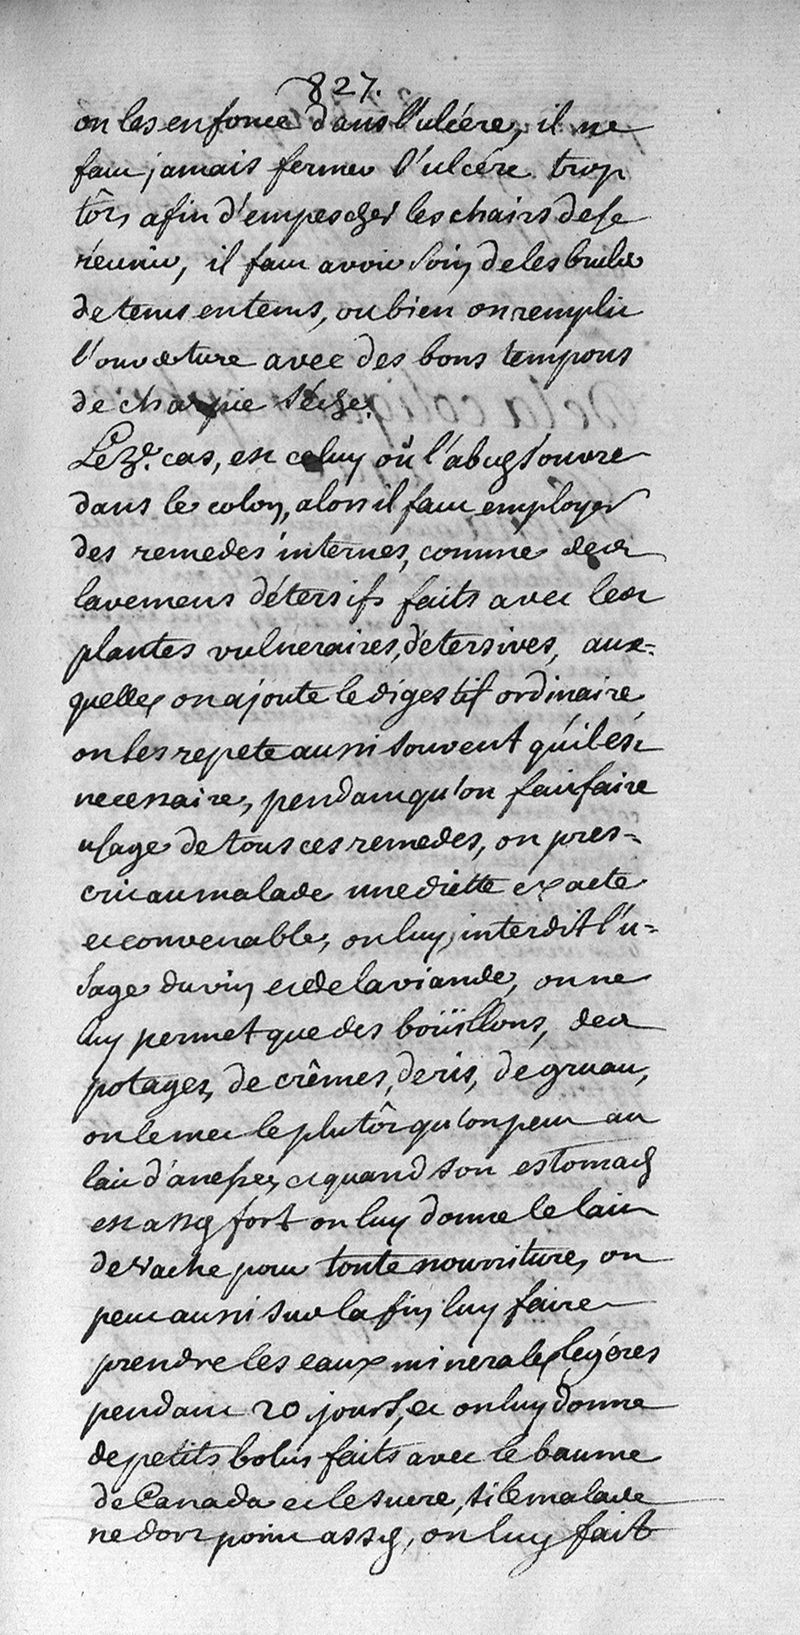 827.
on les enfonce dans l'ulcere, il ne
faut jamais fermer l'ulcére trop
tôt, afin d'empescher les chairs de se
réunir, il faut avoir soin de les bruler
de tems en tems, ou bien on remplit
l'ouverture avec des bons tempons
de charpie séche.
Le 3e. cas, est celuy où l'abcès s'ouvre
dans le colon, alors il faut employer
des remedes internes, comme des
lavemens détersifs faits avec les
plantes vulneraires, détersives, aux=
quelles on ajoute le digestif ordinaire
on les repete aussi souvent qu'il est
necessaire, pendant qu'on fait faire
usage de tous ces remedes, on pres=
crit au malade une diette exacte
et convenable, on luy interdit l'u=
sage du vin et de la viande, on ne
luy permet que des boüillons, des
potages, de crêmes, de ris, de gruau,
on le met le plutôt qu'on peut au
lait d'anesse, et quand son estomach
est assez fort on luy donne le lait
de vache pour toute nourriture, on
peut aussi sur la fin luy faire
prendre les eaux minerales legéres
pendant 20 jours, et on luy donne
de petits bolus faits avec le baume
de Canada et le sucre, si le malade
ne dort point assez, on luy fait